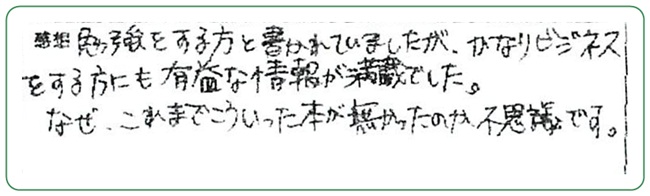 感想 勉強をする方と書かれていましたが、かなりビジネス
をする方にも有益な情報が満載でした。
なぜ、これまでこういった本が無かったのか不思議です。